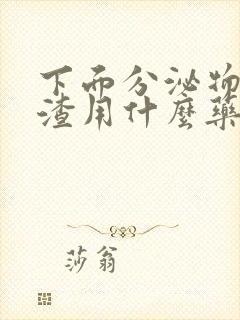 下面分泌物
渣用什麼藥
莎翁